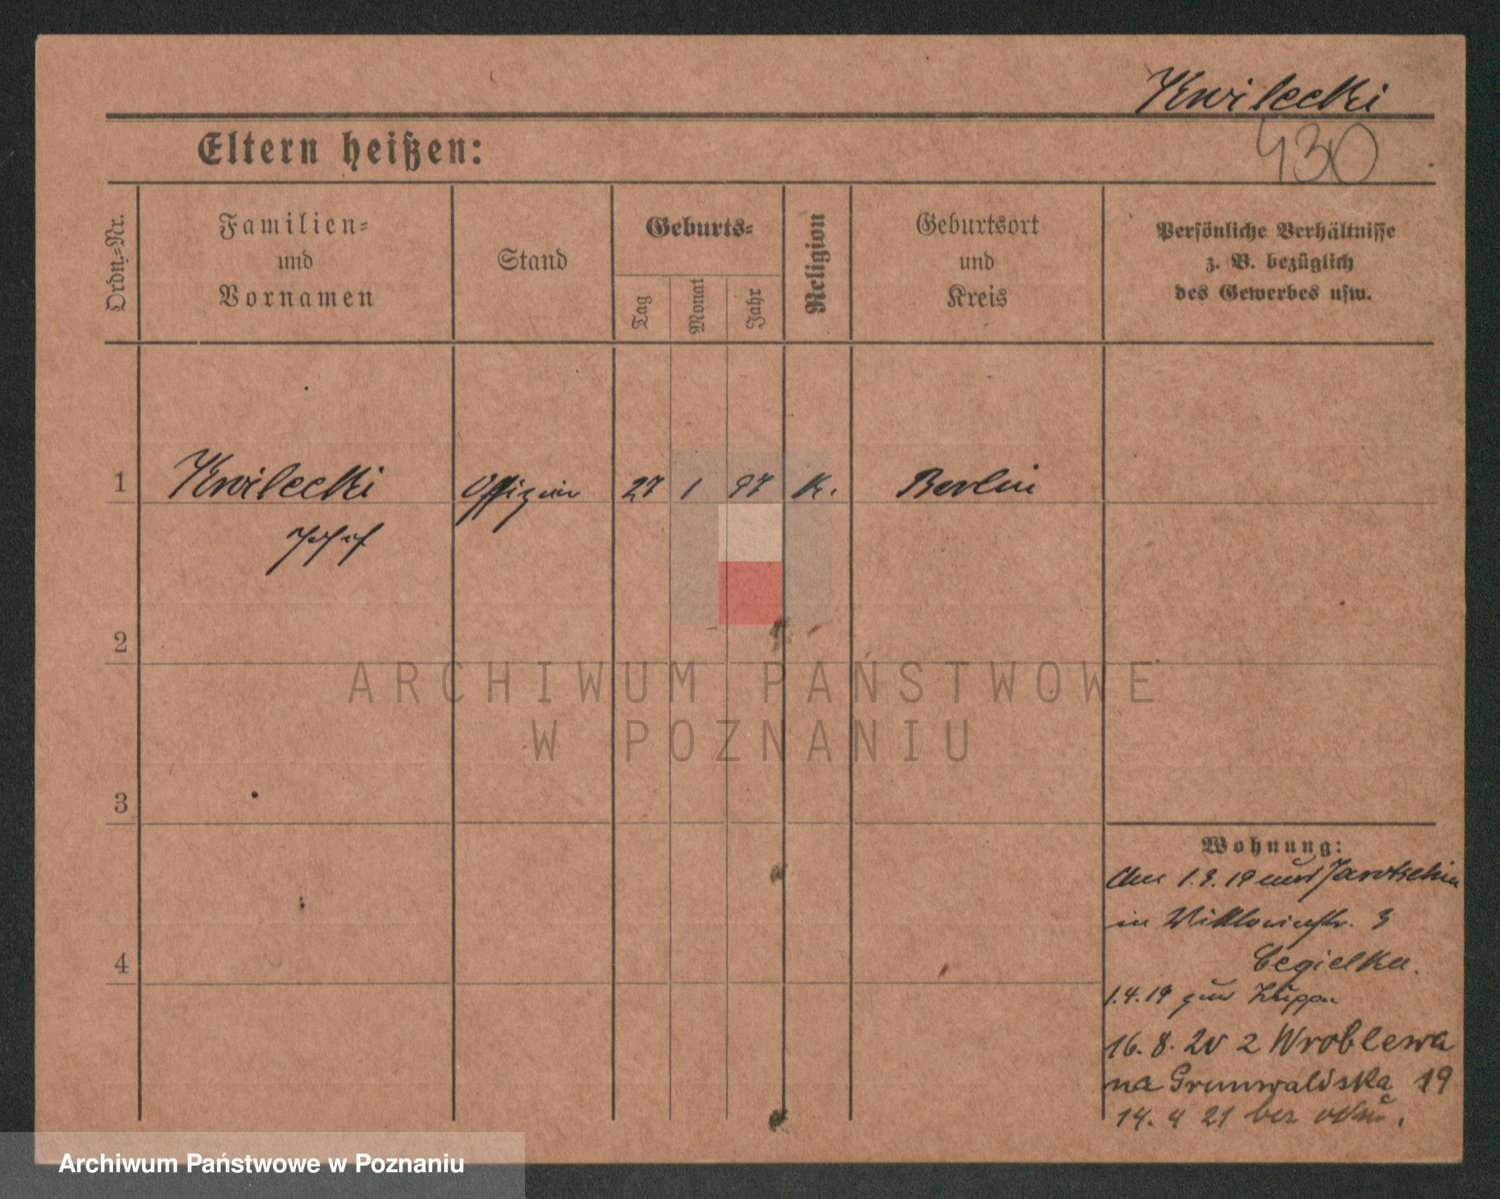 Kwilecki
430
Eltern heißen:
Ordn.-Nr.
Familien-
und
Vornamen
Stand
Geburts-
Tag
Monat
Jahr
Religion
Geburtsort
und
Kreis
Persönliche Verhältnisse
z. B. bezüglich
des Gewerbes usw.
1 Kwilecki Offizier 27 1 97 K. Berlin
Josef
2
3
4
Wohnung:
1.3.19 Jarotschin
in Viktoriastr. 3
Cegielka.
1.4.19 zur Truppe
16. 8. 20 z Wroblewa
na Grunwaldska 19
14. 4 21 bez
ARCHIWUM PAŃSTWOWE
W POZNANIU
Archiwum Państwowe w Poznaniu